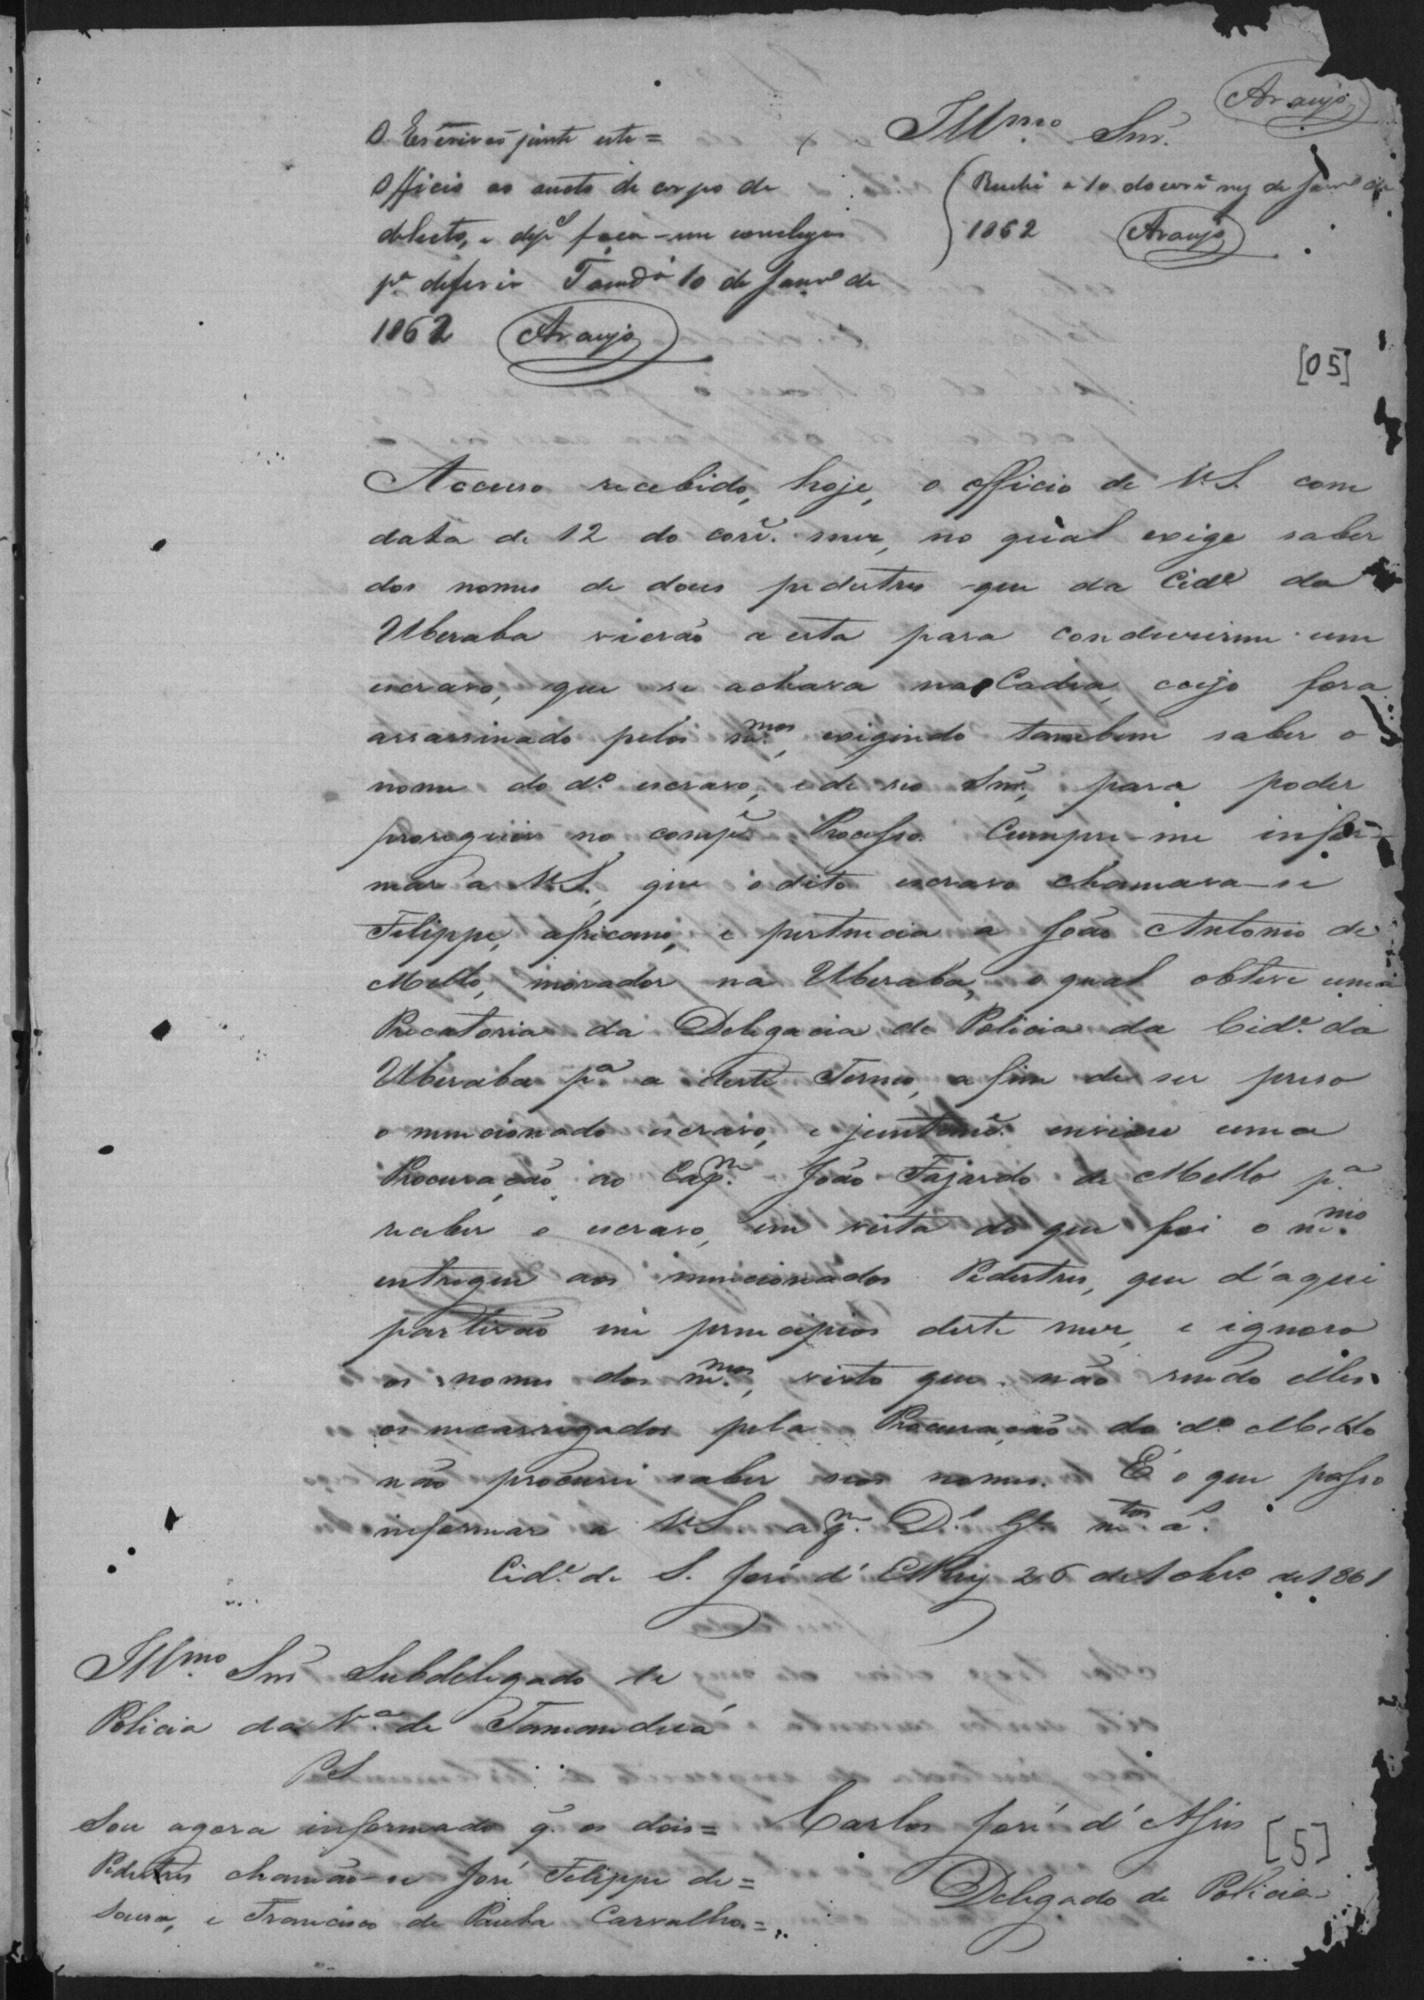 Araujo
Illmo. Snr.
O Escrivão junte este =
Officio ao aucto de corpo de
delicto, e dps faça-me concluzos
pa. deferir Tamdª 10 de Janro de
1862 Araujo
Recebi a 10 do corre mez de Janro de
1862 Araujo
[05]
Accuso recebido, hoje, o officio de V.S. com
data de 12 do corre. mez, no qual exige saber
dos nomes de dous pedestres que da Cide da
Uberaba vierão a esta para conduzirem um
escravo, que se achava na Cadea, cujo fora
assassinado pelos mmos, exigindo tambem saber o
nome do do. escravo, e de seo Snr, para poder
proseguir no compe. Processo. Cumpre-me infor-
mar a V.S., que o dito escravo chamava-se
Filippe, africano, e pertencia a João Antonio de
Mello, morador na Uberaba, o qual obteve uma
Precatoria da Delegacia de Policia da Cide. da
Uberaba pa. a deste Termo, a fim de ser preso
o mencionado escravo, e juntame. enviou uma
Procuração ao Capm. João Fajardo de Mello pa.
receber o escravo, em vista do que foi o mmo.
entregue aos mencionados Pedestres, que d'aqui
partirão em principios deste mez, e ignoro
os nomes dos mmos, visto que não sendo elles
os encarregados pela Procuração do do. Mello
não procurei saber seos nomes. É o que posso
informar a V.S. a qm. Ds. Ge. mtos. as.
Cide. de S. José d' El Rey 26 de 1861
Illmo. Snr Subdelegado de
Policia da Va. de Tamanduá
PS
Sou agora informado q. os dois =
Pedestres chamão-se José Filippe de =
Souza, e Francisco de Paula Carvalho =
Carlos José d' Assis
Delegado de Policia
[5]